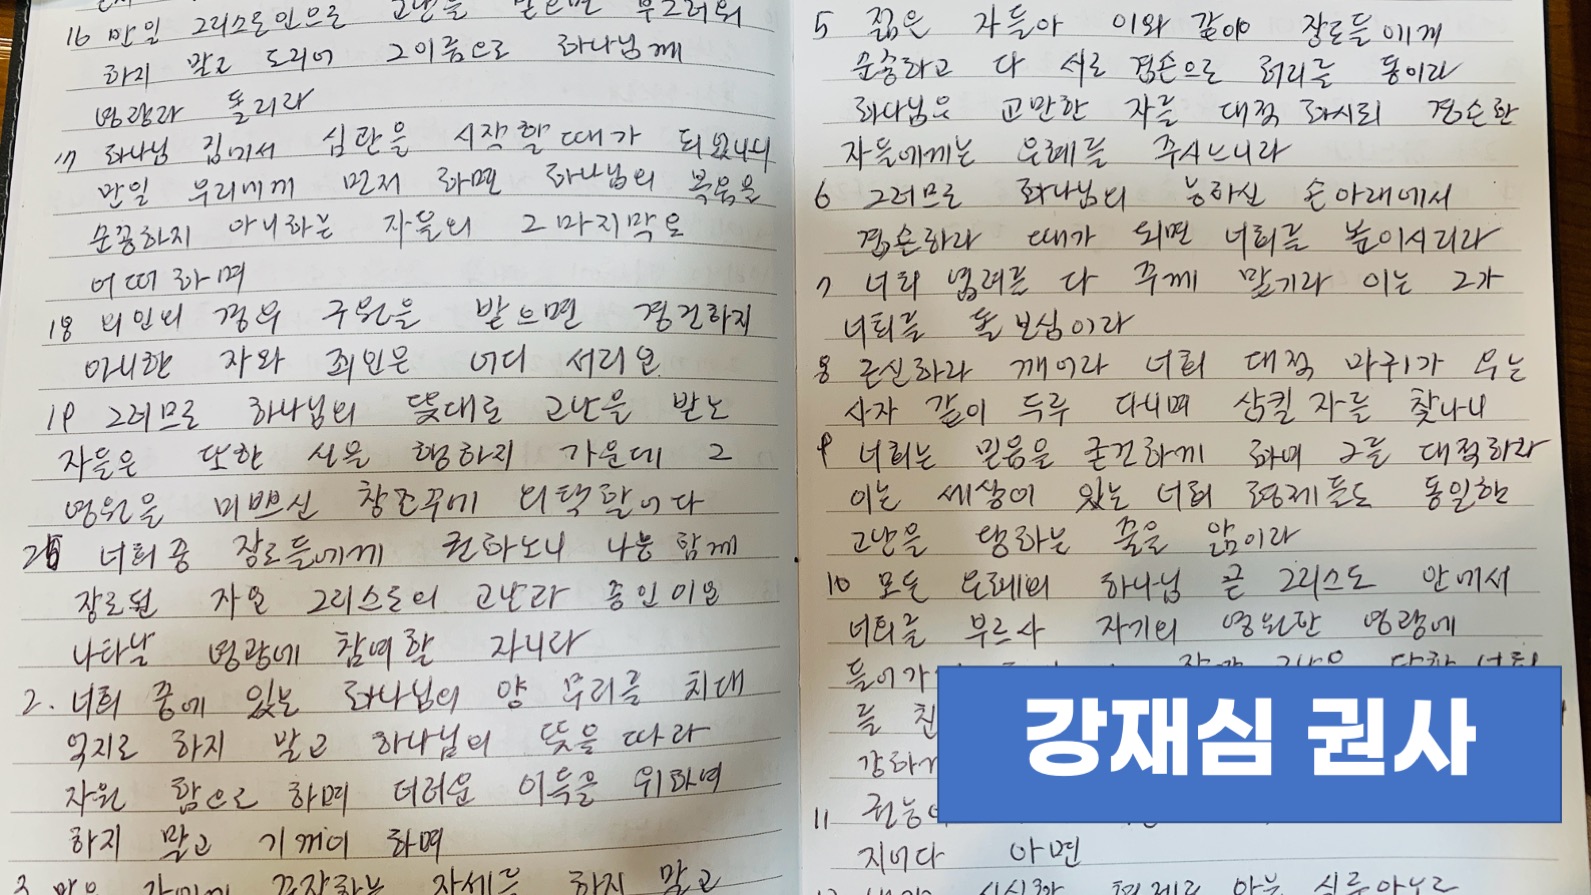 16 만일 그리스도인으로 고난을 받으면 부끄러워
하지 말고 도리어 그이름으로 하나님께
영광과 돌리라
17 하나님 집에서 심판을 시작할 때가 되었나니
만일 우리에게 먼저 하면 하나님의 복음을
순종하지 아니하는 자들의 그 마지막은
어떠 하며
18 의인의 경우 구원을 받으면 경건하지
아니한 자와 죄인은 어디 서리요
19 그러므로 하나님의 뜻대로 고난을 받는
자들은 또한 선을 행하지 가운데 그
영원을 미쁘신 창조주께 의탁할어다
너희중 장로들에게 권하노니 나는 함께
장로된 자요 그리스도의 고난과 증인이요
나타날 영광에 참여할 자니다
2. 너희 중에 있는 하나님의 양 무리를 치대
억지로 하지 말고 하나님의 뜻을 따라
자원 함으로 하며 더러운 이득을 위하여
하지 말고 기꺼이 하며
3 자세를 하지 말고
5 젊은 자들아 이와 같이 장로들에게
순종하고 다 서로 겸손으로 허리를 동이라
하나님은 교만한 자를 대적 하시되 겸손한
자들에게는 은혜를 주시느니라
6 그러므로 하나님의 능하신 손아래에서
겸손하라 때가 되면 너희를 높이시리라
7 너희 염려를 다 주께 맡기라 이는 그가
너희를 돌보심이라
8 근신하라 깨어라 너희 대적 마귀가 우는
사자 같이 두루 다니며 삼킬 자를 찾나니
9 너희는 믿음을 굳건하게 하여 그를 대적하라
이는 세상에 있는 너희 형제들도 동일한
고난을 당하는 줄을 앎이라
10 모든 은혜의 하나님 곧 그리스도 안에서
너희를 부르사 자기의 영원한 영광에
들어가
를 친
강하게
11 권능이
지어다 아멘
강재심 권사